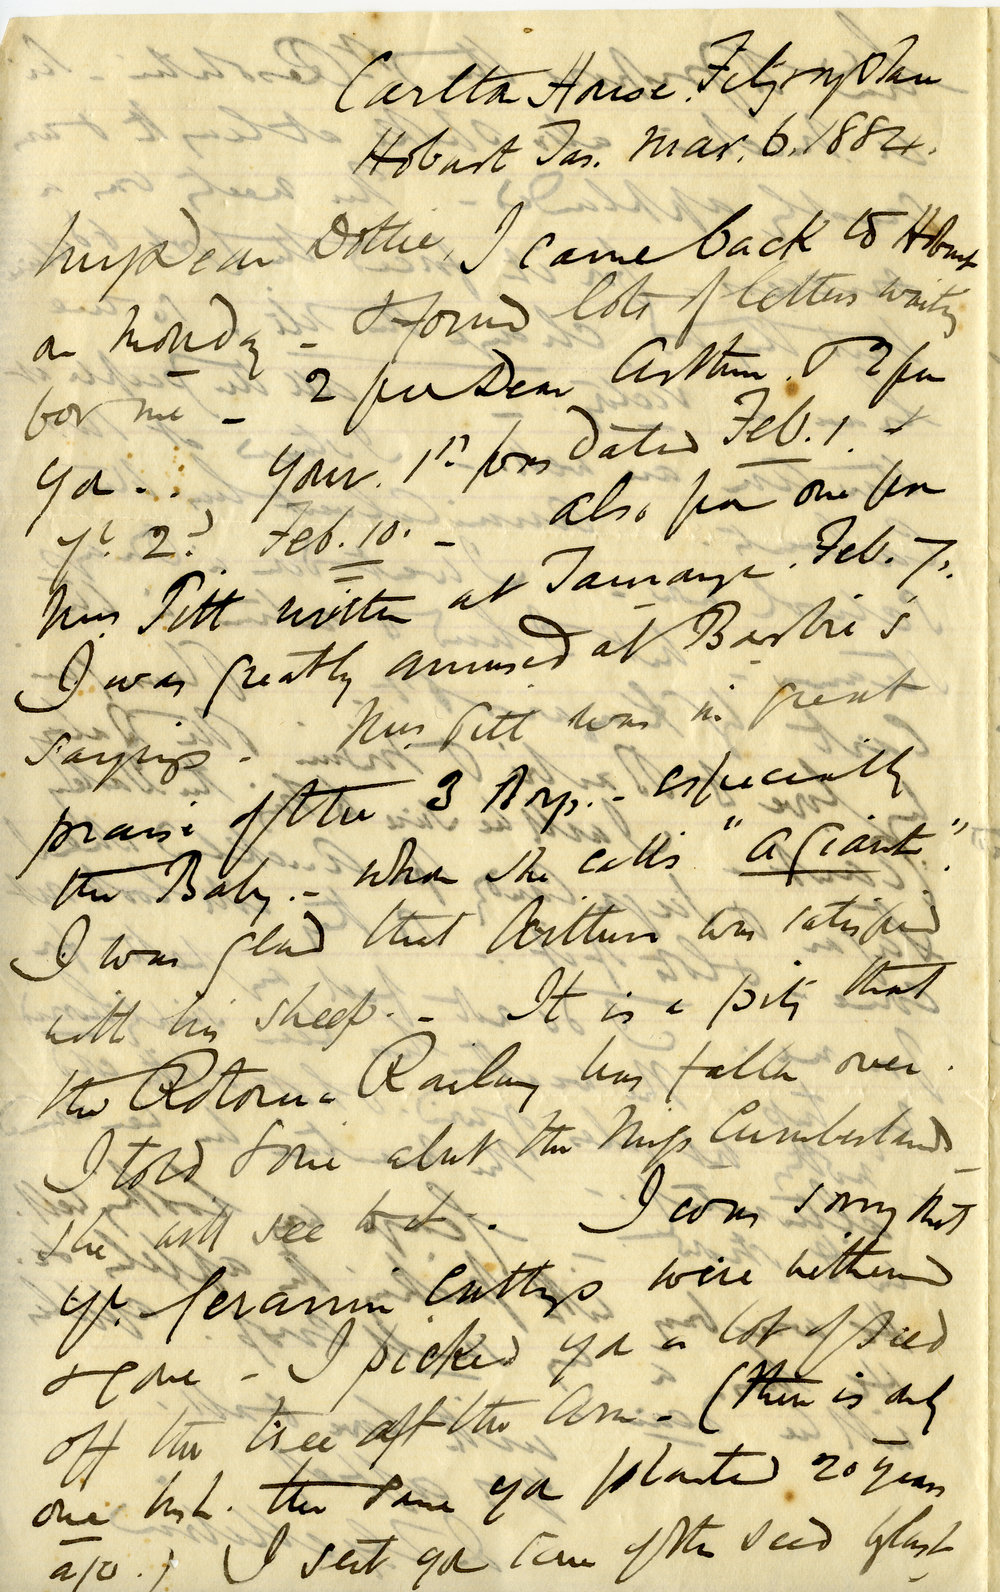 Carlton House, Fitzroy Place
Hobart Tas. Mar. 6. 1884.
My Dear Dottie, I came back to Hobart
on Monday - & found lots of letters waiting
for me - 2 from Dear Arthur. & 2 from
you.. Your 1st was dated Feb. 1. &
yr. 2d. Feb. 10. - also from one from
Mrs. Pitt written at Tauranga. Feb. 7.
I was greatly amused at Barbie's
sayings. Mrs. Pitt was in great
praise of the 3 Boys. - especially
the Baby. - whom she calls "a giant".
I was glad that Arthur was satisfied
with his sheep. - It is a pity that
the Rotorua Railway has fallen over.
I told about the Miss Cumberlands -
she will see to it. I was sorry that
yr. Geranium Cuttings were withered
& gone - I picked you a lot of seed
off the tree at the - (there is only
one bush. the same you planted 20 years
ago.) I sent you some of the seed by last